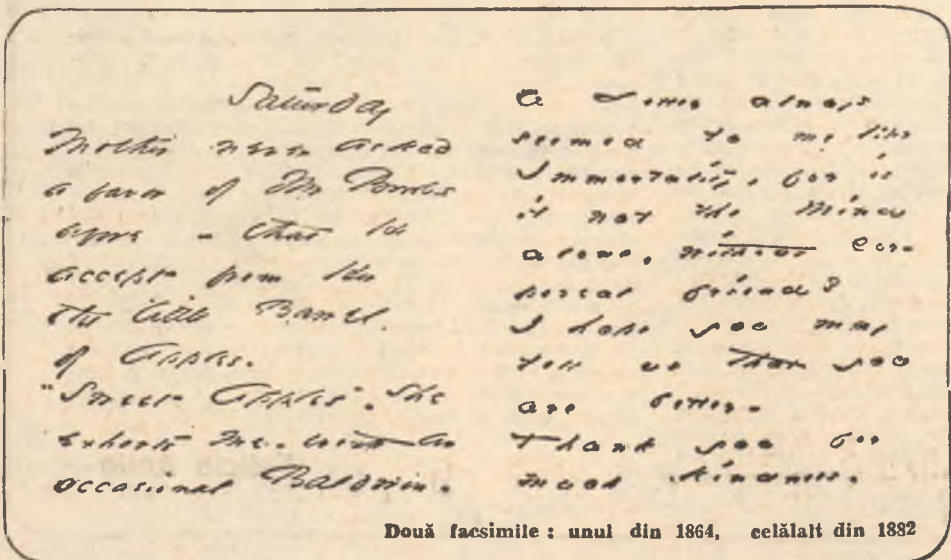 Saturday
Mother never asked
a favor of Mr Bowles
before - that he
accept from her
the little Barrel
of Apples.
"Sweet Apples". She
exhorts me. with an
occasional Baldwin.
A Letter always
seemed to me like
Immortality, for is
it not the Mind
alone, without cor-
poreal friend?
I hope you may
tell us that you
are better.
Thank you for
much kindness.
Două facsimile : unul din 1864, celălalt din 1882